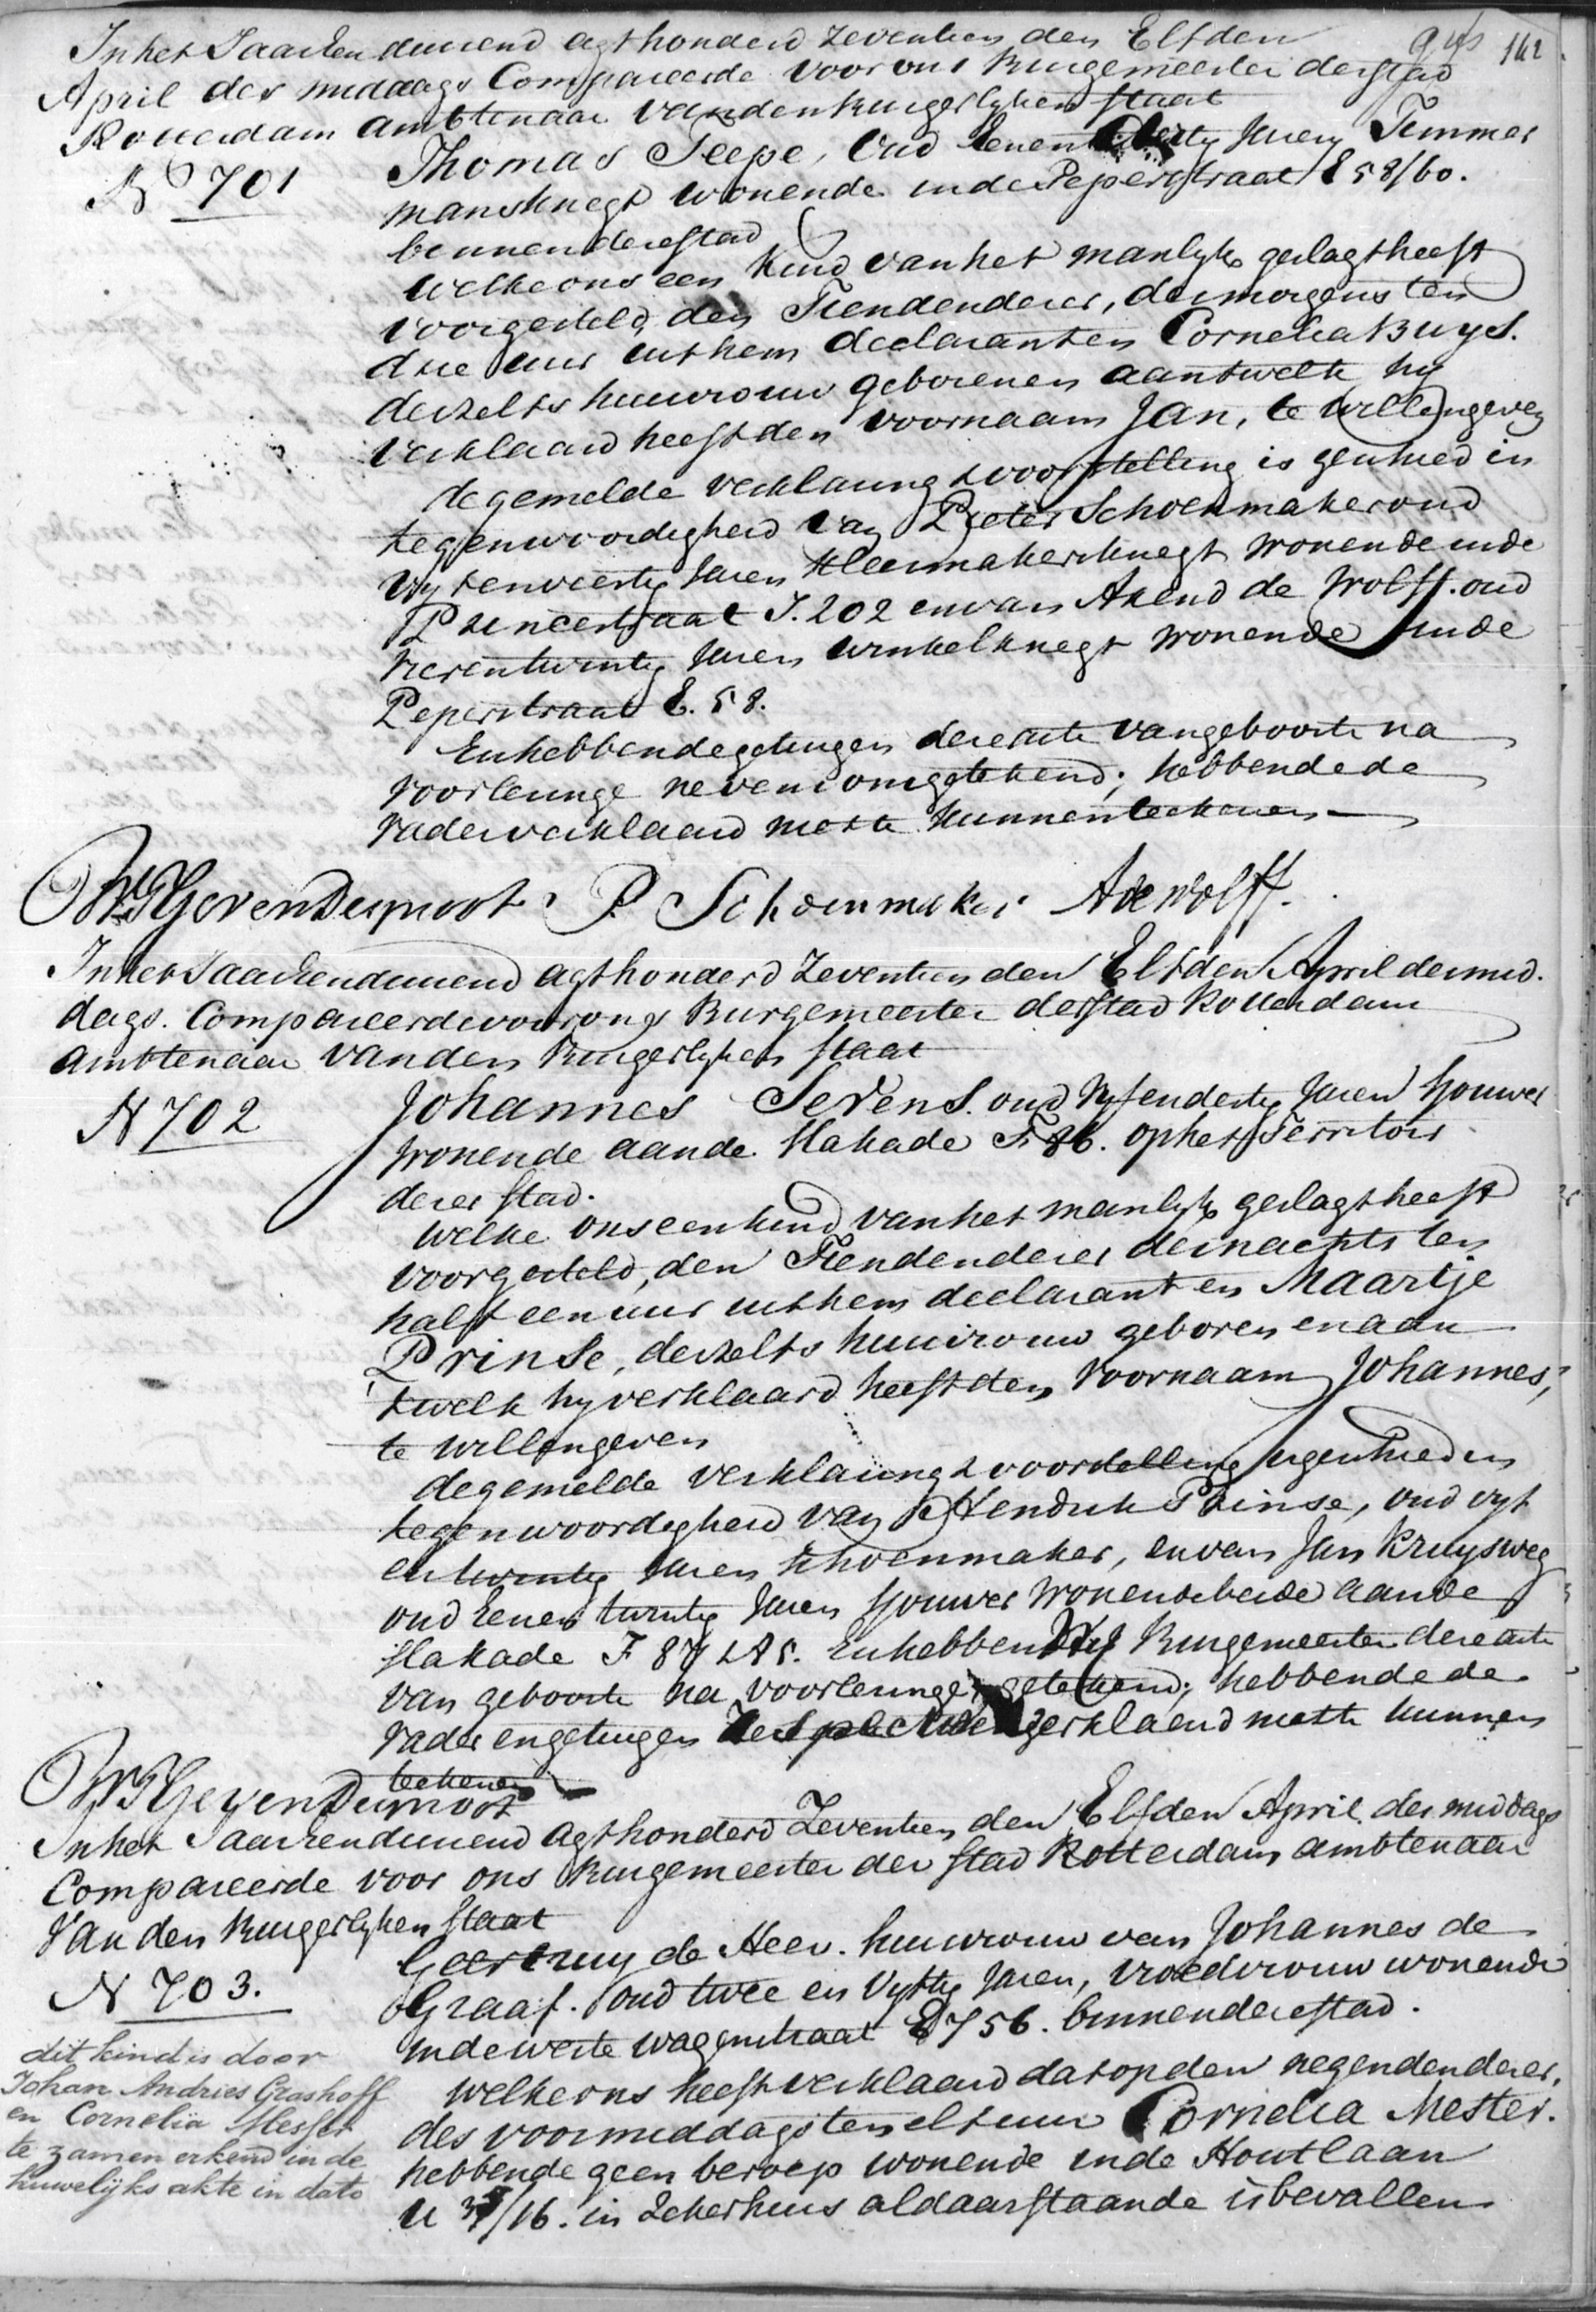 In het Jaar Een duizend agthonderd Zeventien den Elfden
142
April des middags Compareerde voor ons Burgemeester der stad
Rotterdam ambtenaar van den Burgerlyken staat
N° 701
Thomas Teepe, Oud Jaren Timmer
mansknegt wonende in de Peperstraat E 58/60.
binnen deze stad
welke ons een Kind van het manlyk geslagt heeft
voorgesteld, den Tienden dezer, des morgens ten
drie uur uit hem declarant en Cornelia Buys.
deszelfs huisvrouw geboren en aan twelk hy
verklaard heeft den voornaam Jan, te willen geven
de gemelde verklaring & voorstelling is geschied in
tegenwoordigheid van Pieter Schoenmaker oud
vyf en veertig Jaren Kleermakersknegt wonende in de
Princestraat I. 202 en van Arend de Wolff. oud
vier en twintig Jaren winkelknegt wonende in de
Peperstraat E. 58.
En hebben de getuigen deze acte van geboorte na
voorlezinge nevens ons getekend; hebbende de
vader verklaard niet te kunnen teekenen
Gevers Deynoot P Schoenmaker A de Wolff.
In het Jaar Een duizend agthonderd Zeventien den Elfden April des mid.
dags. Compareerde voor ons Burgemeester der stad Rotterdam
ambtenaar van den Burgerlyken staat
N 702
Johannes Sevens. oud vyf en dertig Jaren Sjouwer
wonende aan de Slakade F 86. op het Territoir
dezer stad.
welke ons een kind van het manlyk geslagt heeft
voorgesteld, den Tienden dezer des nachts ten
half een uur uit hem declarant en Maartje
Prinse, deszelfs huisvrouw geboren en aan
twelk hy verklaard heeft den voornaam Johannes,
te willen geven
de gemelde verklaring & voorstelling is geschied in
tegenwoordigheid van Hendrik Prinse, oud vyf
en twintig Jaren Schoenmaker, en van Jan Kruysweg
oud Zeven en twintig Jaren Sjouwer wonende beide aan de
Slakade F 87 & 85. En hebben Wy Burgemeester deze acte
van geboorte na voorlezinge getekend; hebbende de
vader en getuigen respective verklaard niet te kunnen
teekenen
Gevers Deynoot
In het Jaar Een duizend agthonderd Zeventien den Elfden April des middags
Compareerde voor ons Burgemeester der stad Rotterdam ambtenaar
van den Burgerlyken staat
N 703.
Geertruy de Heer. huisvrouw van Johannes de
Graaf. oud twee en vyftig Jaren, vroedvrouw wonende
in de weste wagenstraat E 756. binnen deze stad.
welke ons heeft verklaard dat op den negenden dezer,
des voormiddags ten elf uur Cornelia Mester.
hebbende geen beroep wonende in de Houtlaan
in Zeker huis aldaar staande is bevallen
dit kind is door
Johan Andries Grashoff
en Cornelia Mesfer
te zamen erkend in de
huwelijks akte in dato